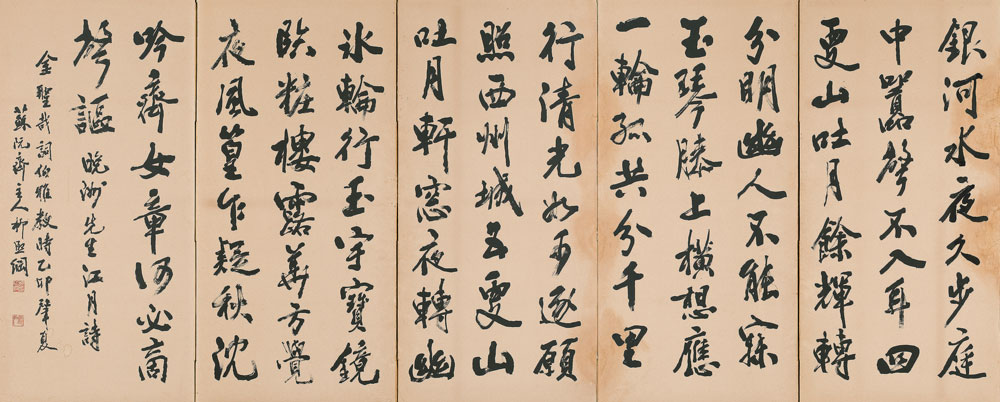 銀河水夜久步庭
中囂聲不入耳四
更山吐月餘輝轉
分明幽人不能寐
玉琴膝上橫想應
一輪孤共分千里
行清光如可逐願
照西州城五更山
吐月軒窓夜轉幽
氷輪行玉宇寶鏡
臨粧樓露華方覺
夜風篁乍疑秋沈
吟齊女章何必商
聲謳 晩洲先生江月詩
金聖哉詞伯雅教時乙卯肇夏
蘇阮齋主人柳熙綱